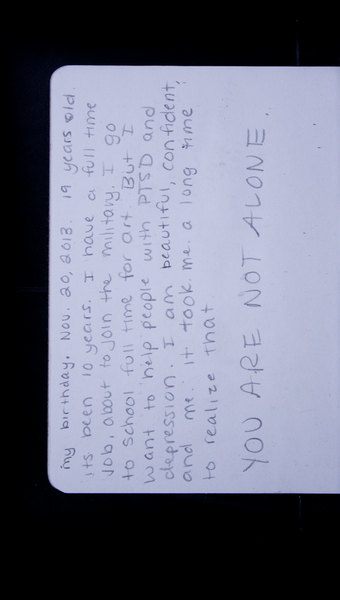 my birthday. Nov. 20, 2013. 19 years old.
its been 10 years. I have a full time
job, about to join the military. I go
to school full time for art. But I
want to help people with PTSD and
depression. I am beautiful, confident,
and me. it took me a long time
to realize that
YOU ARE NOT ALONE.